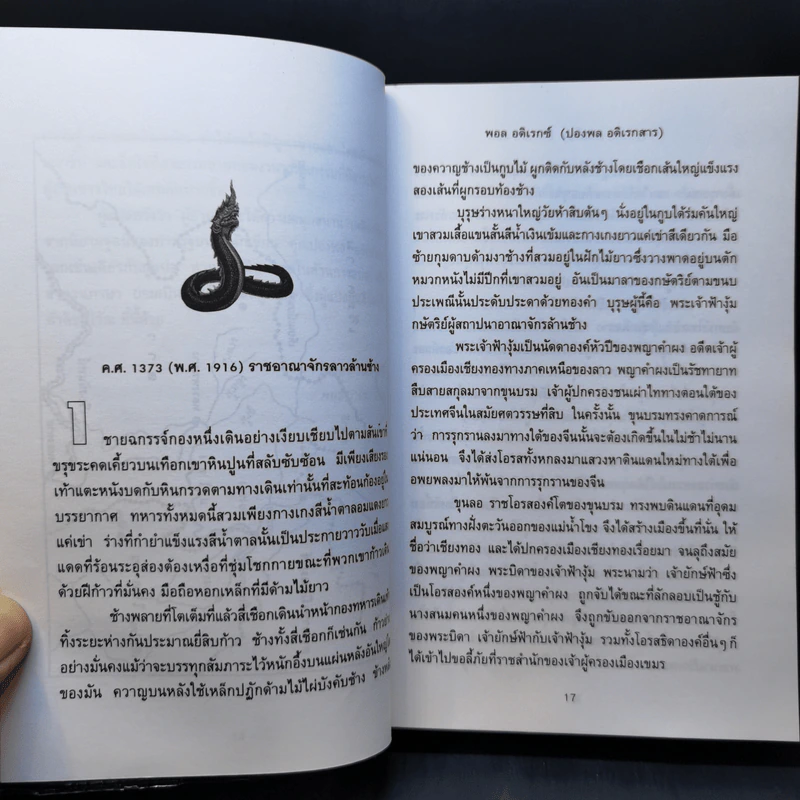 ค.ศ. 1373 (พ.ศ. 1916) ราชอาณาจักรลาวล้านช้าง
1 ชายฉกรรจ์กองหนึ่งเดินอย่างเงียบเชียบไปตามสันเขาที่
ขรุขระคดเคี้ยวบนเทือกเขาหินปูนที่สลับซับซ้อน มีเพียงเสียงของ
เท้าแตะหนังบดกับหินกรวดตามทางเดินเท่านั้นที่สะท้อนก้องอยู่ใน
บรรยากาศ ทหารทั้งหมดนี้สวมเพียงกางเกงสีน้ำตาลอมแดงยาว
แค่เข่า ร่างที่กำยำแข็งแรงสีน้ำตาลนั้นเป็นประกายวาววับเมื่อ
แดดที่ร้อนระอุส่องต้องเหงื่อที่ชุ่มโชกกายขณะที่พวกเขาก้าวเดิน
ด้วยฝีก้าวที่มั่นคง มือถือหอกเหล็กที่มีด้ามไม้ยาว
ช้างพลายที่โตเต็มที่แล้วสี่เชือกเดินนำหน้ากองทหารเดินเท้า
ทิ้งระยะห่างกันประมาณยี่สิบก้าว ช้างทั้งสี่เชือกก็เช่นกัน
อย่างมั่นคงแม้ว่าจะบรรทุกสัมภาระไว้หนักอึ้งบนแผ่นหลังอันใหญ่โต
ของมัน ควาญบนหลังใช้เหล็กปฏักด้ามไม้ไผ่บังคับช้าง
พอล อดิเรกซ์ (ปองพล อดิเรกสาร)
ของควาญช้างเป็นกูบไม้ ผูกติดกับหลังช้างโดยเชือกเส้นใหญ่แข็งแรง
สองเส้นที่ผูกรอบท้องช้าง
บุรุษร่างหนาใหญ่วัยห้าสิบต้นๆ นั่งอยู่ในกูบใต้ร่มคันใหญ่
เขาสวมเสื้อแขนสั้นสีน้ำเงินเข้มและกางเกงยาวแค่เข่าสีเดียวกัน มือ
ซ้ายกุมดาบด้ามงาช้างที่สวมอยู่ในฝักไม้ยาวซึ่งวางพาดอยู่บนตัก
หมวกหนังไม่มีปีกที่เขาสวมอยู่ อันเป็นมาลาของกษัตริย์ตามขนบ
ประเพณีนั้นประดับประดาด้วยทองคำ บุรุษผู้นี้คือ พระเจ้าฟ้างุ้ม
กษัตริย์ผู้สถาปนาอาณาจักรล้านช้าง
พระเจ้าฟ้างุ้มเป็นนัดดาองค์หัวปีของพญาคำผง อดีตเจ้าผู้
ครองเมืองเชียงทองทางภาคเหนือของลาว พญาคำผงเป็นรัชทายาท
สืบสายสกุลมาจากขุนบรม เจ้าผู้ปกครองชนเผ่าไททางตอนใต้ของ
ประเทศจีนในสมัยศตวรรษที่สิบ ในครั้งนั้น ขุนบรมทรงคาดการณ์
ว่า การรุกรานลงมาทางใต้ของจีนนั้นจะต้องเกิดขึ้นในไม่ช้าไม่นาน
แน่นอน จึงได้ส่งโอรสทั้งหกลงมาแสวงหาดินแดนใหม่ทางใต้เพื่อ
อพยพลงมาให้พ้นจากการรุกรานของจีน
ขุนลอ ราชโอรสองค์โตของขุนบรม ทรงพบดินแดนที่อุดม
สมบูรณ์ทางฝั่งตะวันออกของแม่น้ำโขง จึงได้สร้างเมืองขึ้นที่นั่น ให้
ชื่อว่าเชียงทอง และได้ปกครองเมืองเชียงทองเรื่อยมา จนลุถึงสมัย
ของพญาคำผง พระบิดาของเจ้าฟ้างุ้ม พระนามว่า เจ้ายักษ์ฟ้าซึ่ง
เป็นโอรสองค์หนึ่งของพญาคำผง ถูกจับได้ขณะที่ลักลอบเป็นชู้กับ
นางสนมคนหนึ่งของพญาคำผง จึงถูกขับออกจากราชอาณาจักร
ของพระบิดา เจ้ายักษ์ฟ้ากับเจ้าฟ้างุ้ม รวมทั้งโอรสธิดาองค์อื่นๆ ก็
ได้เข้าไปขอลี้ภัยที่ราชสำนักของเจ้าผู้ครองเมืองเขมร
17